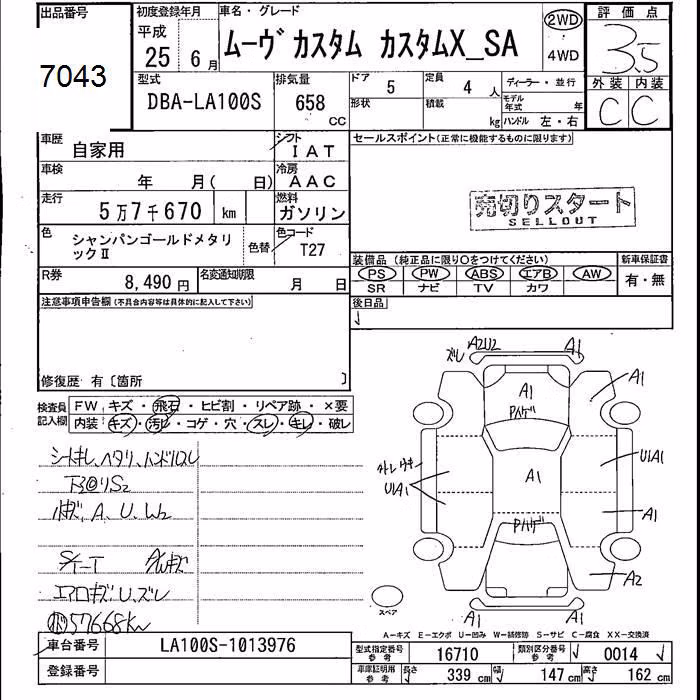 出品番号
7043
初度登録年月
平成
25年 6月
車名・グレード
ムーヴ カスタム カスタムX_SA
2WD
4WD
評価点
3.5
外装 内装
C C
型式
DBA-LA100S
排気量
658
CC
ドア
5
定員
4人
形状
積載
kg
ディーラー・並行
モデル年式 年
ハンドル 左・右
車歴
自家用
シフト
IAT
セールスポイント(正常に機能するものに限ります)
車検
年 月( 日)
冷房
AAC
走行
5万7千670 km
燃料
ガソリン
売切りスタート
SELLOUT
色
シャンパンゴールドメタリックⅡ
色替
色コード
T27
装備品 (純正品に限り○をつけてください)
新車保証書
PS PW ABS エアB AW
SR ナビ TV カワ
有・無
R券
8,490円
名変通知期限
月 日
後日品
注意事項申告欄(不具合内容等は具体的に記入して下さい)
修復歴 有〔箇所 〕
検査員記入欄
FW キズ・飛石・ヒビ割・リペア跡・×要
内装 キズ・汚レ・コゲ・穴・スレ・キレ・破レ
シートキレ、ヘタリ、ハンドルスレ
下回りS2
小キズ、A、U、W2
エアロキズU、ズレ
57668km
ズレ A2U2 A1
A1
A1
Pハゲ
U1A1
U1A1
A1
Pハゲ
A1
A2
A1
スペア
A-キズ E-エクボ U-凹み W-補修跡 S-サビ C-腐食 XX-交換済
車台番号
LA100S-1013976
登録番号
型式指定番号 参考
16710
類別区分番号 参考
0014
車庫証明用 参考
長さ 339 cm
幅 147 cm
高さ 162 cm